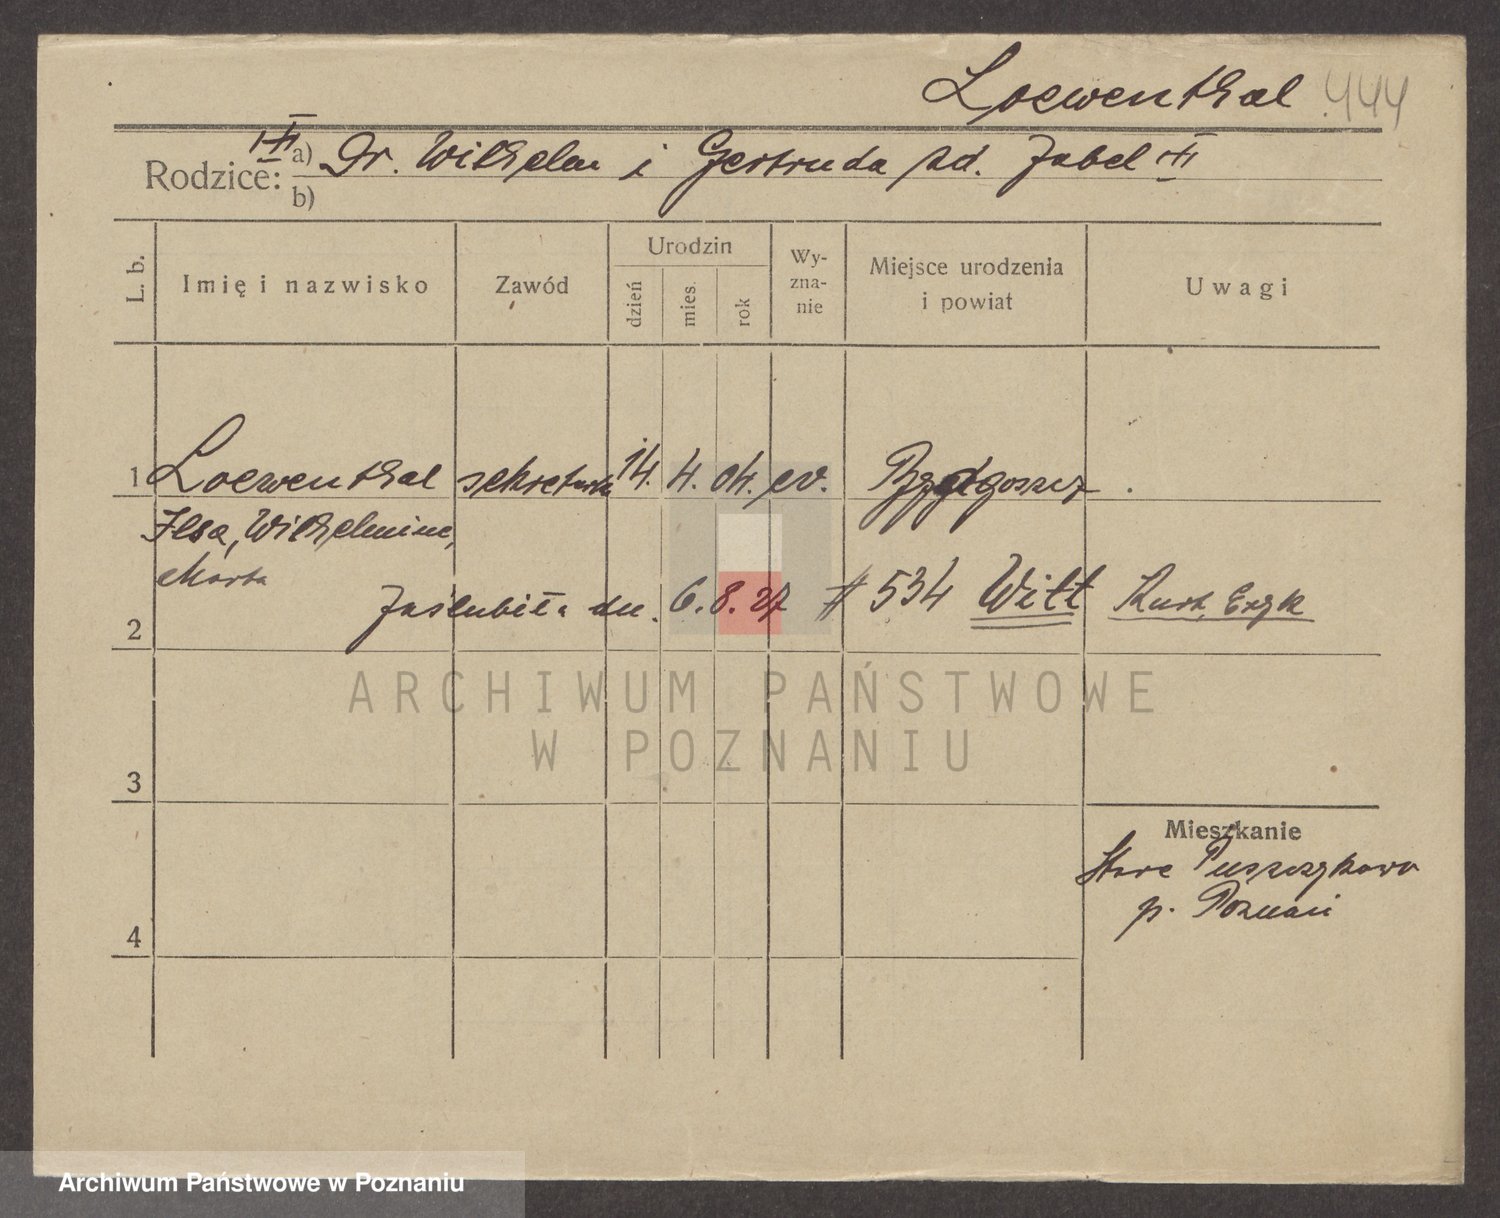 Loewenthal 444
Rodzice: a) Dr. Wilhelm i Gertruda zd. Zabel
b)
L. b. Imię i nazwisko Zawód Urodzin dzień mies. rok Wyznanie Miejsce urodzenia i powiat Uwagi
1 Loewenthal sekretarka 14. 4. 04. ev. Bydgoszcz
Ilsa, Wilhelmine,
Marta
2 Zaślubiła dn. 6. 8. 27 # 534 Witt Kurt, Eryk
ARCHIWUM PAŃSTWOWE
W POZNANIU
3
Mieszkanie
Stare Puszczykowo
p. Poznań
4
Archiwum Państwowe w Poznaniu